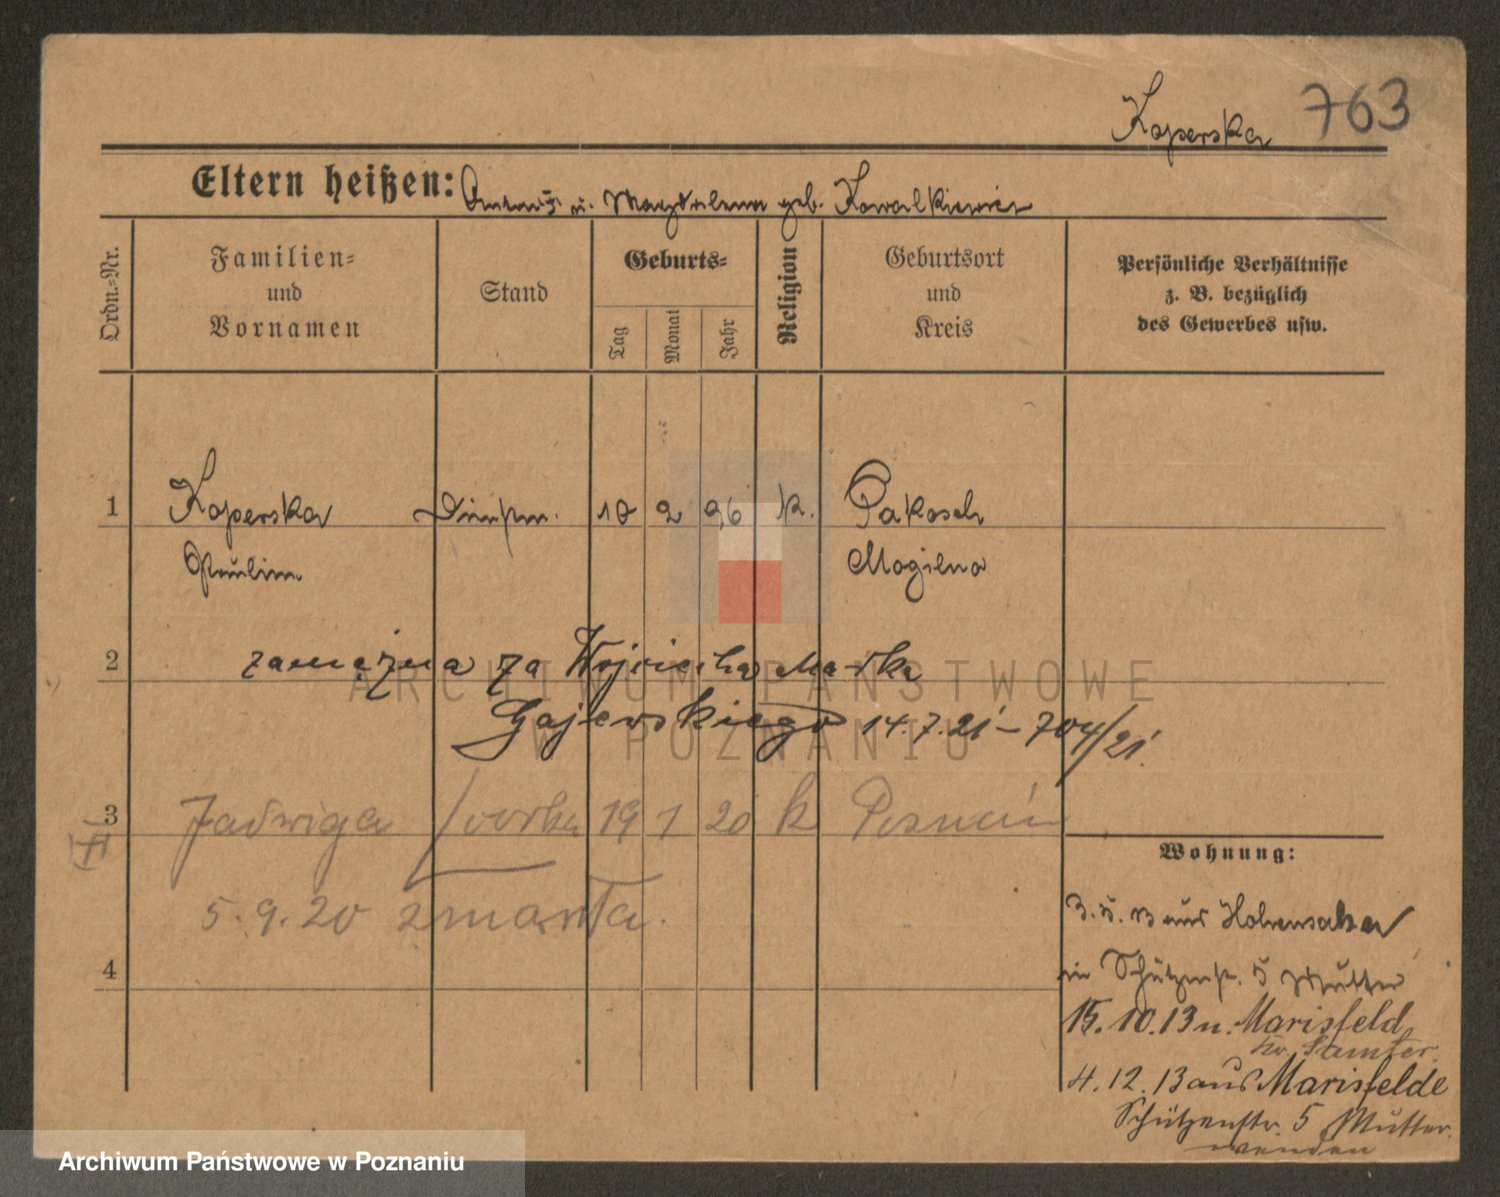 Koperska 763
Eltern heißen: Anton u. Magdalena geb. Kowalkiewicz
Ordn.-Nr.
Familien-
und
Vornamen
Stand
Geburts-
Tag
Monat
Jahr
Religion
Geburtsort
und
Kreis
Persönliche Verhältnisse
z. B. bezüglich
des Gewerbes usw.
1 Koperska 18 2 96 k. Pakosch
Paulina Mogilno
2 zamężna za Wojciecha Marka
Gajewskiego 14.7.21 – 704/21.
3 Jadwiga córka 19 1 20 k Poznań
II
5.9.20 zmarła.
4
Wohnung:
3.5.13 aus Hohensalza
in Schützenstr. 5 Mutter
15.10.13 n. Marisfeld
Kr. Samter.
4.12.13 aus Marisfelde
Schützenstr. 5 Mutter.
wenden
ARCHIWUM PAŃSTWOWE
W POZNANIU
Archiwum Państwowe w Poznaniu